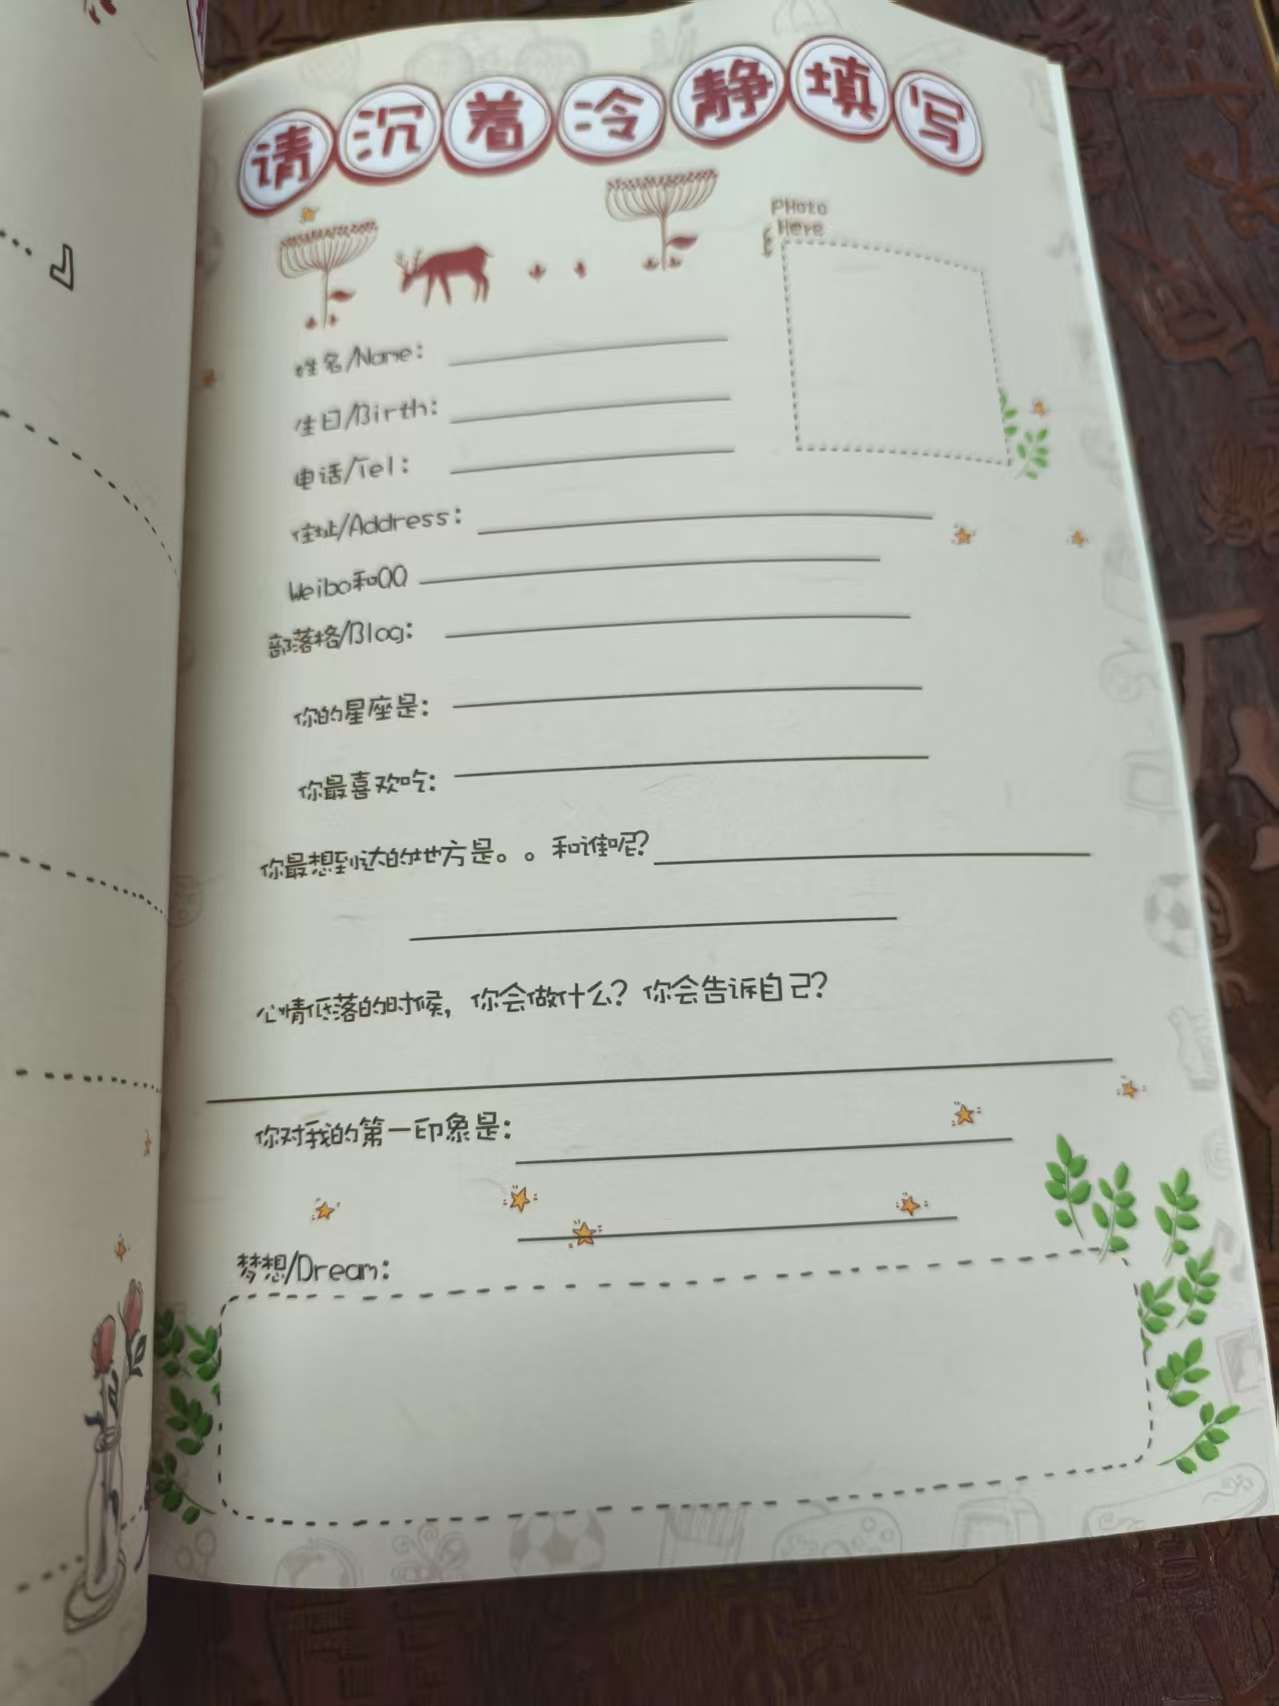 请沉着冷静填写
PHoto
Here
姓名/Name:
生日/Birth:
电话/Tel:
住址/Address:
Weibo和QQ
部落格/Blog:
你的星座是:
你最喜欢吃:
你最想到达的地方是。。和谁呢?
心情低落的时候，你会做什么? 你会告诉自己?
你对我的第一印象是:
梦想/Dream: